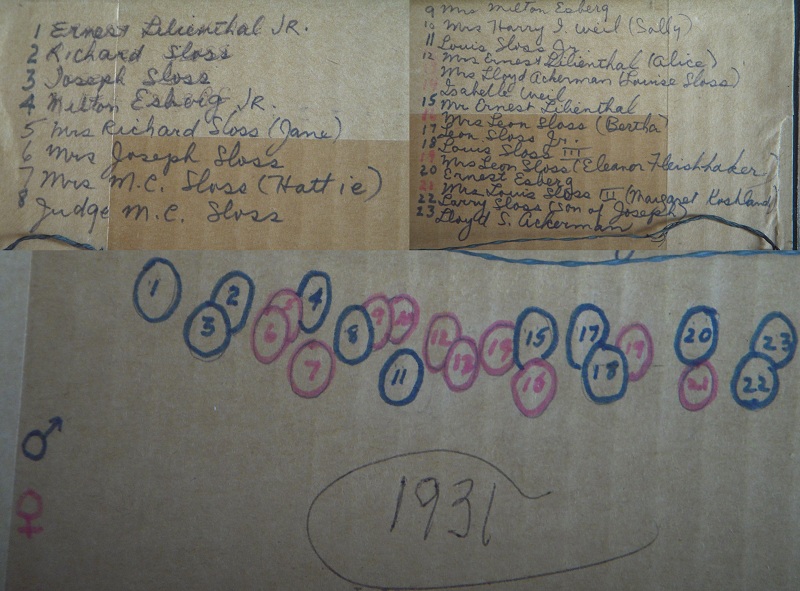 1 Ernest Lilienthal JR.
2 Richard Sloss
3 Joseph Sloss
4 Milton Esberg JR.
5 Mrs Richard Sloss (Jane)
6 Mrs Joseph Sloss
7 Mrs M.C. Sloss (Hattie)
8 Judge M.C. Sloss
9 Mrs Milton Esberg
10 Mrs Harry I. Weil (Sally)
11 Louis Sloss Jr.
12 Mrs Ernest Lilienthal (Alice)
Mrs Lloyd Ackerman (Louise Sloss)
Isabelle Weil
15 Mr Ernest Lilienthal
Mrs Leon Sloss (Bertha)
17 Leon Sloss Jr.
18 Louis Sloss III
19 Mrs Leon Sloss (Eleanor Fleishhaker)
20 Ernest Esberg
21 Mrs Louis Sloss III (Margaret Koshland)
22 Larry Sloss (son of Joseph)
23 Lloyd S. Ackerman
1 2 3 4 5 6 7 8 9 10 11 12 13 15 16 17 18 19 20 21 22 23
♂
♀
1931